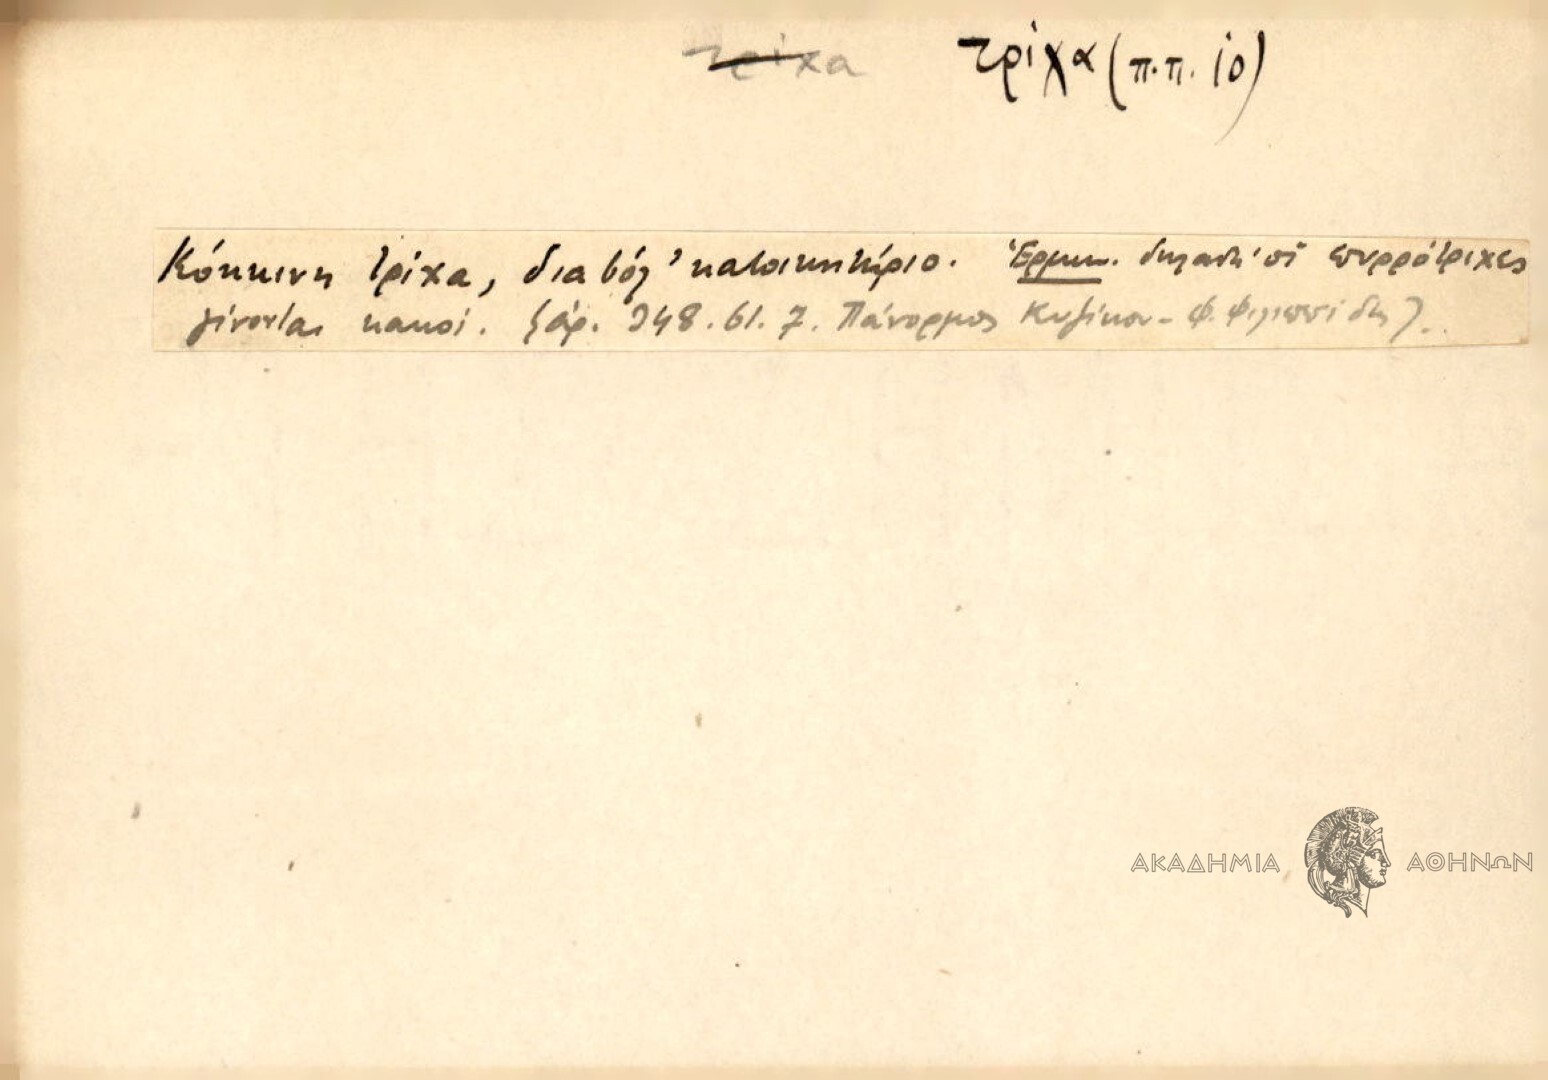 τρίχα τρίχα (π.π. ἰὸ)
Κόκκινη τρίχα, διαβόλ' κατοικητήριο. Ἑρμην. δηλαδή οἱ πυρρότριχες
γίνονται κακοί. (ἀρ. 948. 61. 7. Πάνορμος Κυζίκου - Φ. Φιλιππίδης).
ΑΚΑΔΗΜΙΑ ΑΘΗΝΩΝ